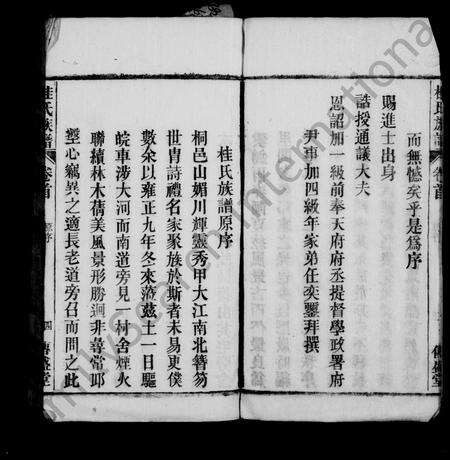 桂氏族譜 卷首
而無憾矣乎是爲序
賜進士出身
誥授通議大夫
恩詔加一級前奉天府府丞提督學政署府
尹事加四級年家弟任奕鑾拜撰
桂氏族譜原序
桐邑山媚川輝靈秀甲大江南北簪笏
世胄詩禮名家聚族於斯者未易更僕
數余以雍正九年冬來蒞茲土一日驅
皖車涉大河而南道旁見村舍煙火
聯續林木蒨美風景形勝迥非尋常耶
壑心竊異之適長老道旁召而問之此
桂氏族譜 卷首 原序 四 傳盛堂